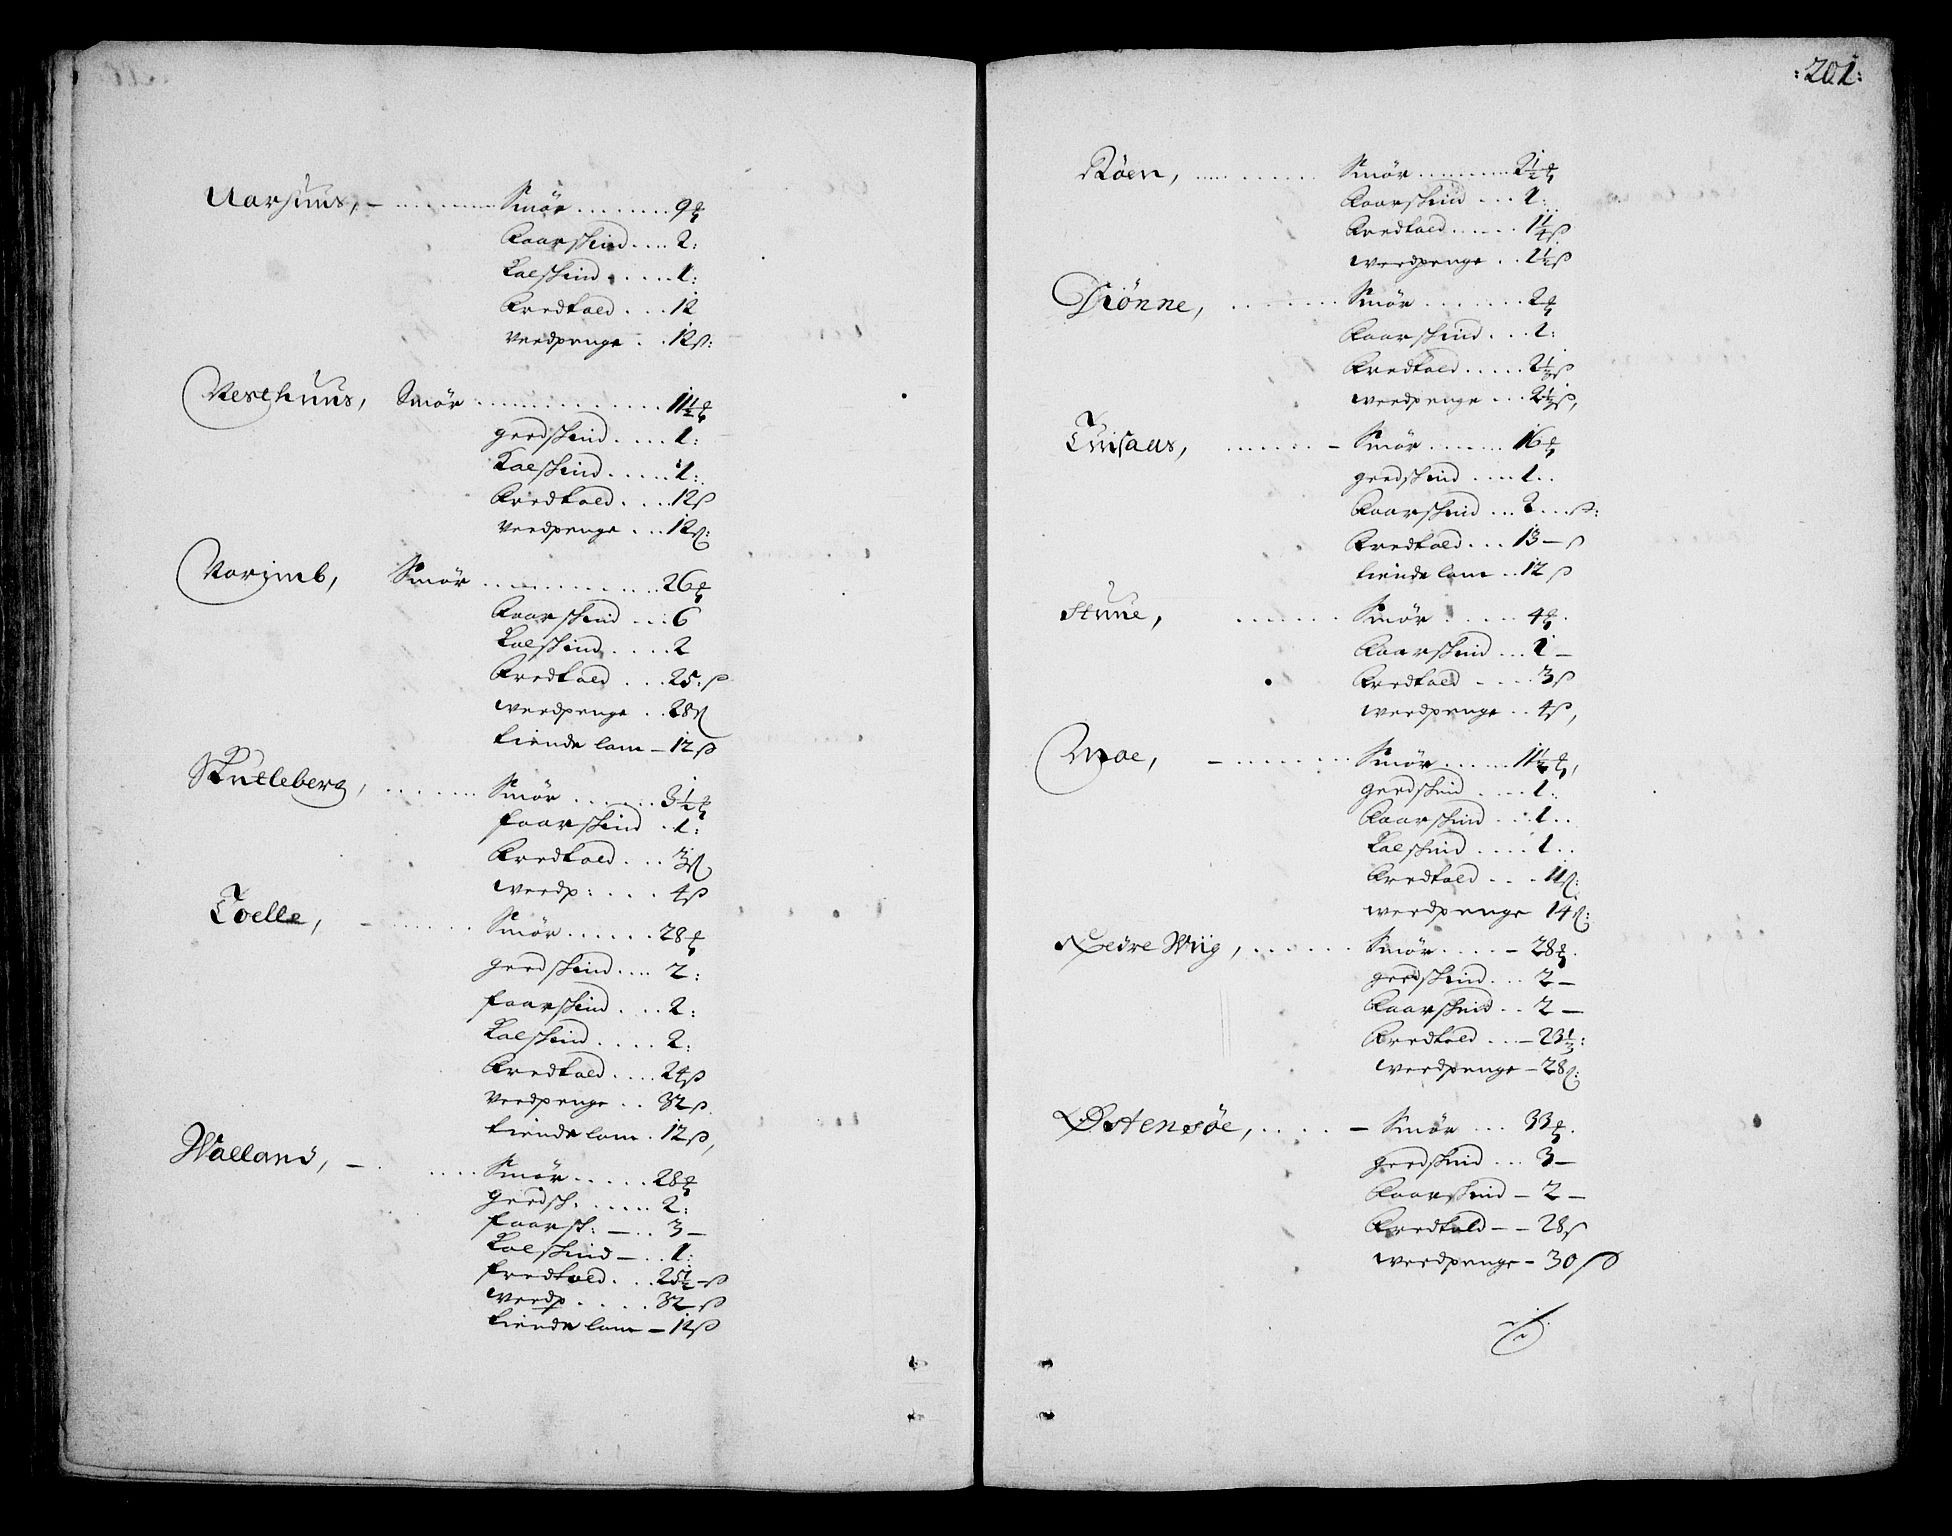 Aarhuus, - Smør 9 ℔
Faarskind 2:
Kalfskind 1:
Fredtold 12
Verdpenge 12 ß:
Vesthuus, Smør 11½ ℔
gedskind 1:
Kalfskind 1:
Fredtold 12 ß
Verdpenge 12 ß:
Smør 26 ℔
Faarskind 6
Kalfskind 2
Fredtold 25: ß
werdpenge 28 ß
tiende lam - 12 ß
Skutleberg, Smør 3½ ℔
faarskind 1:
Fredtold 3 ß
werdp: 4 ß
Tvelle, - Smør 28 ℔
gedskind 2:
faarskind 2:
Kalfskind 2:
Fredtold 24 ß
Verdpenge 32 ß.
tiende lam 12 ß,
Walland, - Smør 28 ℔
gedsk: 2:
faarsk: - 3 -
Kalfskind - 1:
fredtold 25½ - ß
werdp 32 - ß
tiende lam - 12 ß
:201:
Røen, Smør 2½ ℔
Faarskind 1:
Fredtold 1¼ ß
werdpenge 1½ ß
Diønne, Smør 2 ℔
Faarskind 1:
Fredtold 2½ ß
werdpenge 2½ ß,
- Smør 16 ℔
gedskind 1..
Faarskind 2 ß:
Fredtold 13 - ß
tiende lam 12 ß
Stune, Smør 4 ℔.
Faarskind 1 -
Fredtold 3 ß
werdpenge 4 ß,
Moe, - Smør 11½ ℔,
gedskind 1.
Faarskind 1..
Kalfskind 1..
Fredtold 11 ß:
werdpenge 14 ß:
Nedre Wiig, Smør - 28 ℔.
gedskind 2 -
Faarskind 2 -
Fredtold - 23⅓:
werdpenge - 28 ß:
Østensøe, - Smør 33 ℔.
gedskind 3 -
Faarskind - 2 -
Fredtold - - 28 ß
werdpenge - 30 ß